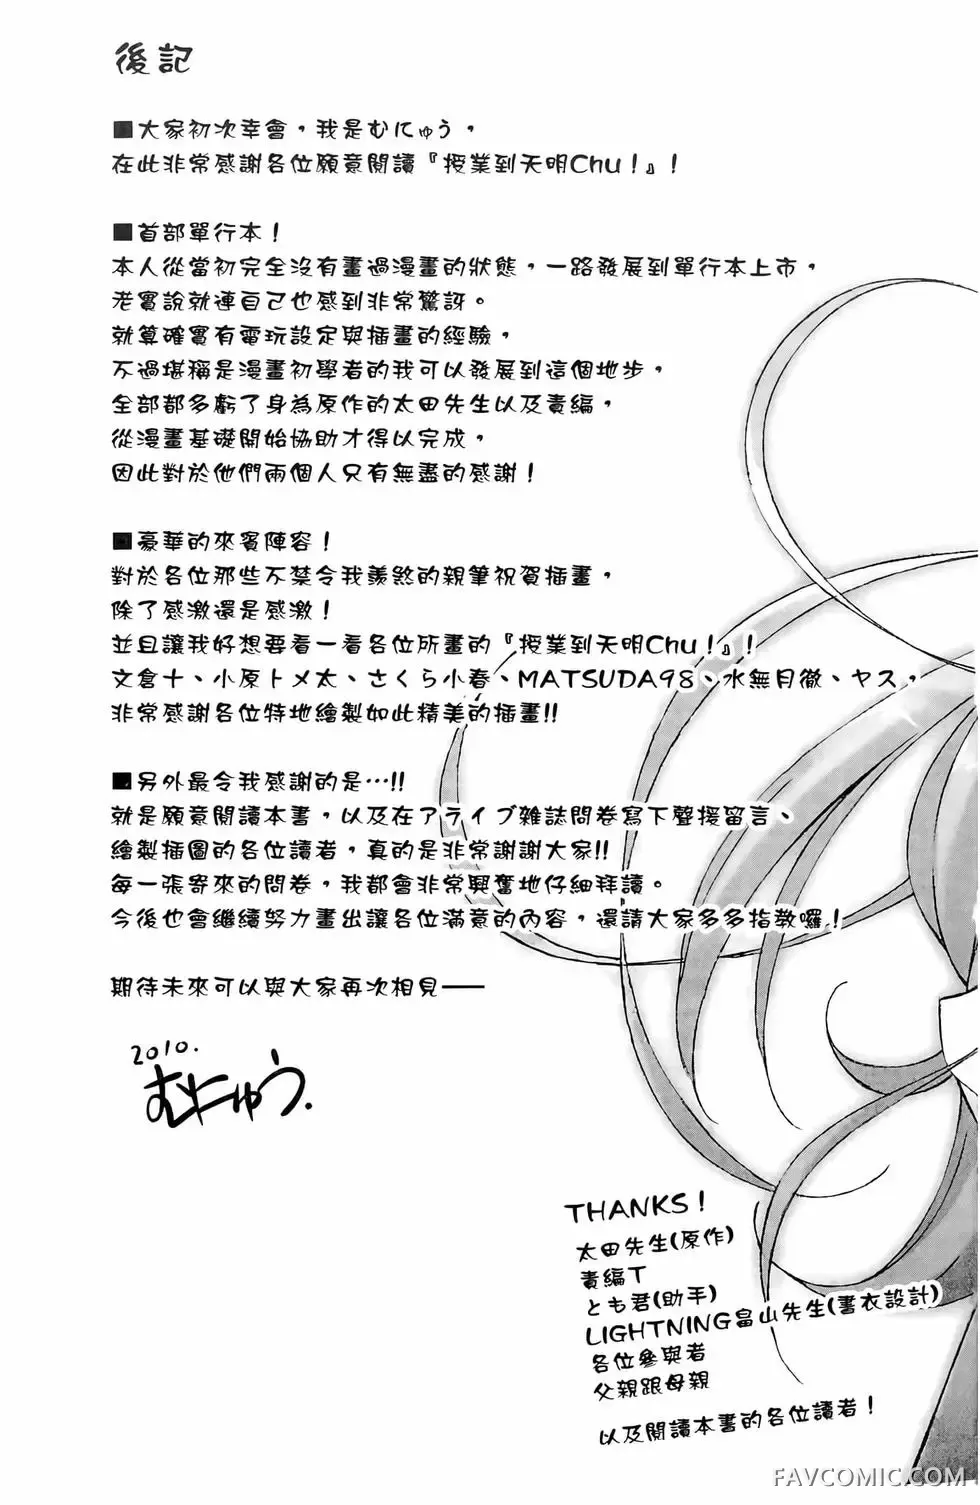 後記
■大家初次幸會，我是むにゅう，
在此非常感謝各位願意閱讀『授業到天明Chu！』！
■首部單行本！
本人從當初完全沒有畫過漫畫的狀態，一路發展到單行本上市，
老實說就連自己也感到非常驚訝。
就算確實有電玩設定與插畫的經驗，
不過堪稱是漫畫初學者的我可以發展到這個地步，
全部都多虧了身為原作的太田先生以及責編，
從漫畫基礎開始協助才得以完成，
因此對於他們兩個人只有無盡的感謝！
■豪華的來賓陣容！
對於各位那些不禁令我羨煞的親筆祝賀插畫，
除了感激還是感激！
並且讓我好想要看一看各位所畫的『授業到天明Chu！』！
文倉十、小原トメ太、さくら小春、MATSUDA98、水無月徹、ヤス，
非常感謝各位特地繪製如此精美的插畫!!
■另外最令我感謝的是…!!
就是願意閱讀本書，以及在アライブ雜誌問卷寫下聲援留言、
繪製插圖的各位讀者，真的是非常謝謝大家!!
每一張寄來的問卷，我都會非常興奮地仔細拜讀。
今後也會繼續努力畫出讓各位滿意的內容，還請大家多多指教囉！
期待未來可以與大家再次相見——
2010.
むにゅう.
THANKS！
太田先生(原作)
責編T
とも君(助手)
LIGHTNING畠山先生(書衣設計)
各位參與者
父親跟母親
以及閱讀本書的各位讀者！
FAVCOMIC.COM